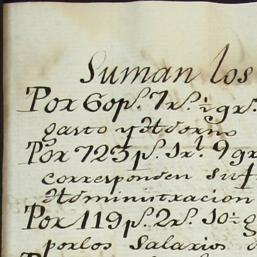 Suman los
Por 60ps. 7rs. ½ grs.
gasto y Adorno
Por 723ps. 1rl. 9 gr
corresponden su
Administracion
Por 119ps. 2rs. 10½ g
por los Salarios